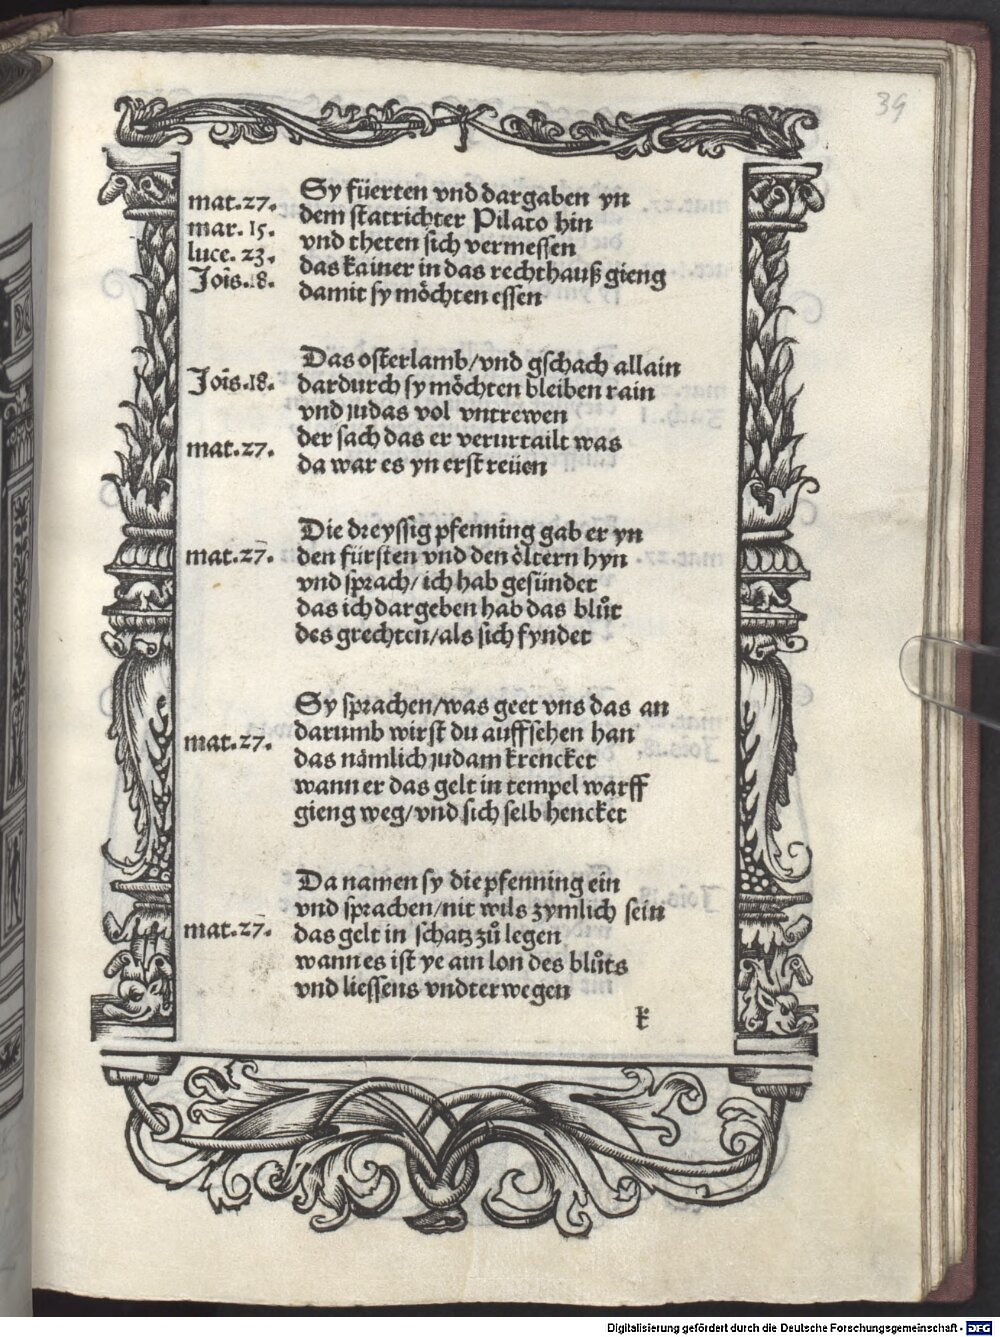 39
mat.27. Sy füerten vnd dargaben yn
mar. 15. dem statrichter Pilato hin
luce. 23. vnd theten sich vermessen
Joīs.18. das kainer in das rechthauß gieng
damit sy möchten essen
Das osterlamb/vnd gschach allain
Joīs.18. dardurch sy möchten bleiben rain
vnd judas vol vntrewen
mat.27. der sach das er verurtailt was
da war es yn erst reüen
Die dreyssig pfenning gab er yn
mat.27. den fürsten vnd den öltern hyn
vnd sprach/ ich hab gesündet
das ich dargeben hab das blůt
des grechten/als sich fyndet
Sy sprachen/was geet vns das an
mat.27. darumb wirst du auffsehen han
das nämlich judam krencket
wann er das gelt in tempel warff
gieng weg/vnd sich selb hencket
Da namen sy die pfenning ein
vnd sprachen/nit wils zymlich sein
mat.27. das gelt in schatz zů legen
wann es ist ye ain lon des blůts
vnd liessens vndterwegen
k
Digitalisierung gefördert durch die Deutsche Forschungsgemeinschaft - DFG